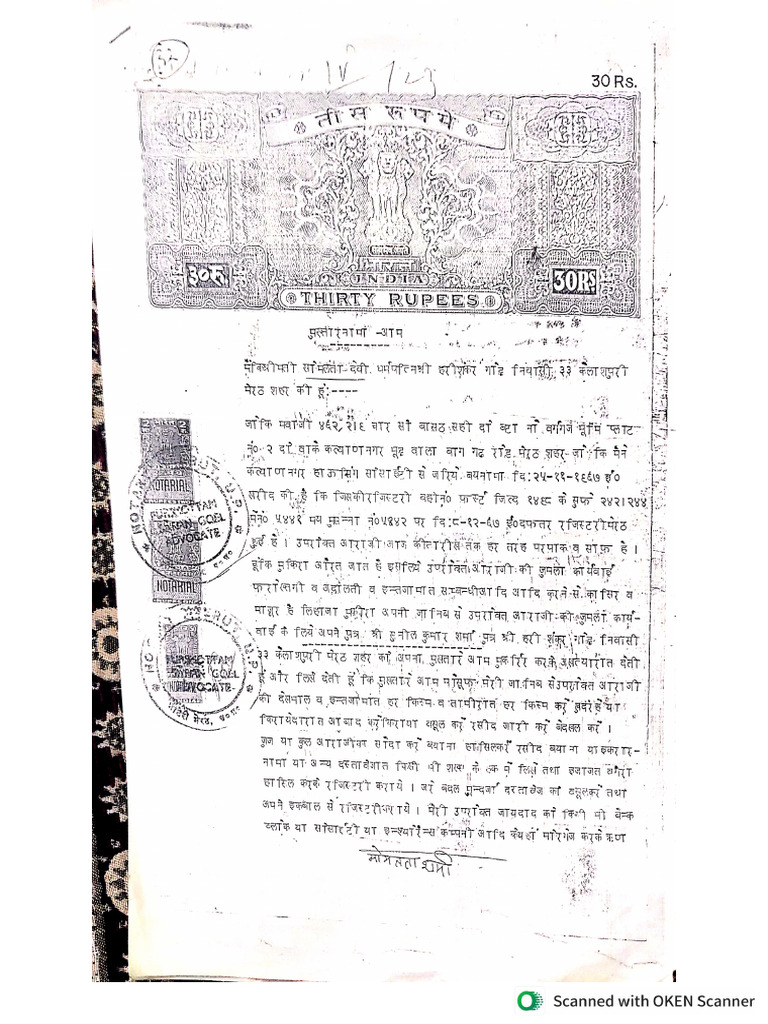 30 Rs.
तीस रूपये
भारत
INDIA
३०रु.
30RS
THIRTY RUPEES
मुख्तारनामा -आम
श्रीमती सोमलता देवी धर्मपत्नि श्री हरीशंकर गौड निवासी ३३ कैलाशपुरी
मेरठ शहर की हूं:----
जोकि मवाजी ४६२,२।६ चार सौ बासठ सही दो बटा नौ वर्गगज भूमि प्लाट
नं०-२ वाके कल्याणनगर मूढ वाला बाग गढ रोड मेरठ शहर- जो कि मैने
कल्याणनगर हाऊसिंग सोसाईटी से जरिये बयनामा दि:२५-११-१९६७ ई०
खरीद की है कि जिसकी रजिस्टरी बही नं० फर्स्ट जिल्द १४९८ के सुफे २४२।२४४
में नं० ५४४१ मय मुसन्ना नं०५४४२ पर दि:८-१२-६७ ई० दफतर रजिस्टरी मेरठ
हुई है । उपरोक्त आराजी आज की तारीख तक हर तरह से पाक व साफ है ।
चूंकि मुकिरा औरत जात है इसलिये उपरोक्त आराजी की जुमला कार्यवाई
व अदालती व इन्तजामात सम्बन्धी आदि आदि करने से कासिर व
माजूर है लिहाजा मुकिरा अपनी जानिब से उपरोक्त आराजी की जुमला कार्य-
वाई के लिये अपने पुत्र श्री सुनील कुमार शर्मा पुत्र श्री हरी शंकर गौड निवासी
३३ कैलाशपुरी मेरठ शहर को अपना मुख्तारे आम मुकर्रर करके अख्त्यारात देती
है और लिखे देती है कि मुख्तार आम मौसूफ मेरी जानिब से उपरोक्त आराजी
की देखभाल व इन्तजामात हर किस्म व तामीरात हर किस्म करें
किरायेदारान आबाद करें किराया वसूल करें रसीद जारी करें बेदखल करें ।
जुज या कुल आराजी का सौदा करें बयाना हासिल करें रसीद बयाना या इकरार-
नामा या अन्य दस्तावेजात किसी भी शख्स के हक में लिखे तथा इजाजत वगैरा
हासिल करके रजिस्टरी कराये । जरे बदल मुन्दर्जा दस्तावेज को वसूल करें तथा
अपने इकबाल से रजिस्टरी कराये । मेरी उपरोक्त जायदाद को किसी भी बैंक
ब्लोक या सोसाईटी या इन्श्योरेन्स कम्पनी आदि के यहां मोरगेज करके ऋण
सोमलता शर्मा
NOTARIAL
PURSHOTTAM
SARAN GOEL
ADVOCATE
NOTARIAL
PURSHOTTAM
SARAN GOEL
ADVOCATE
Scanned with OKEN Scanner